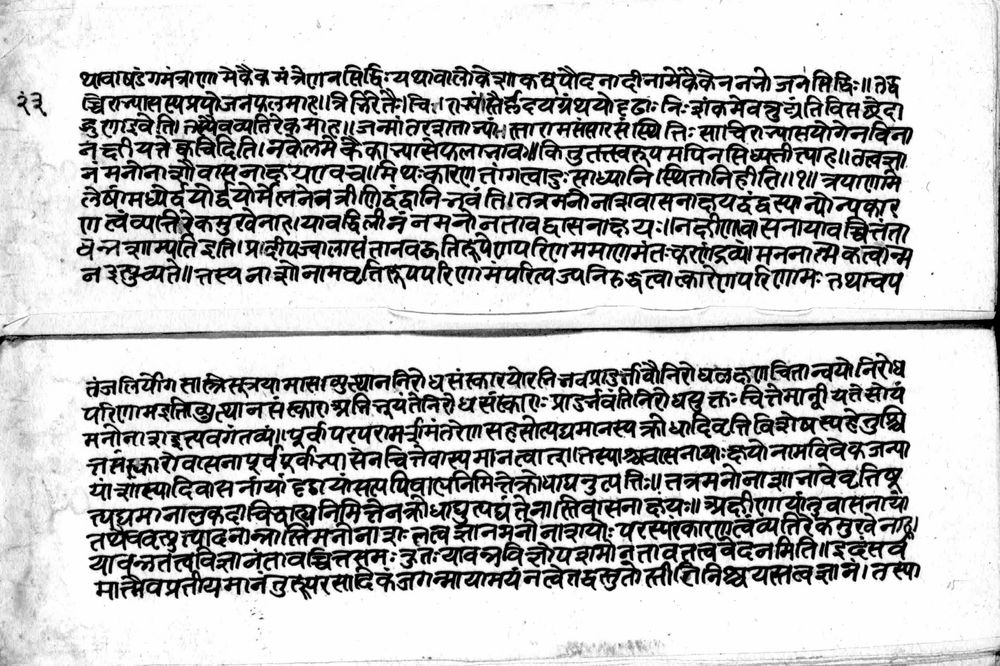 थावाषडंगमंत्राणामेकैकमंत्रेणनसिद्धिः यथावालौकेशाकसूपौदनादीनामेकैकेननभोजनसिद्धिः॥तद्व
२३
च्चिराभ्यासस्यप्रयोजनफलमाह॥त्रिभिरेतैः हृदयग्रंथयोदृढाः निःशंकमेवत्रुट्यंति
इति। तस्यैवव्यतिरेकमाह॥जन्मांतरशताभ्यस्तारामसंसारसंस्थितिः साचिराभ्यासयोगेनविना
नक्षीयतेक्वचिदिति। नकेवलमेकैकाभ्यासेफलाभावः॥किंतुतत्स्वरूपमपिनसिध्यतीत्याह॥तत्वज्ञा
नंमनोनाशोवासनाक्षयएवच॥मिथःकारणतांगत्वादुःसाध्यानिस्थितानिहीति॥१॥त्रयाणामे
तेषांमध्येद्वयोर्द्वयोर्मेलनेनत्रीणिद्वंद्वानिभवंति।तत्रमनोनाशवासनाक्षयद्वंद्वस्यान्योन्यकार
णत्वंव्यतिरेकमुखेनाह।यावद्विलीनंनमनोनतावद्वासनाक्षयः॥नक्षीणावासनायावच्चित्तंता
वन्नशाम्यतिइति।प्रदीपज्वालासंतानवद्वृत्तिरूपेणपरिणममाणमंतःकरणद्रव्यं।मननात्मकत्वान्म
नइत्युच्यते॥तस्यनाशोनामवृत्तिरूपपरिणामंपरित्यज्यनिरुद्धत्वाकारेणपरिणामः तथाचप
तंजलिर्योगशास्त्रेसूत्रयामास।व्युत्थाननिरोधसंस्कारयोरभिभवप्रादुर्भावौनिरोधक्षणचित्तान्वयोनिरोध
परिणामइति।व्युत्थानसंस्काराअभिभूयंतेनिरोधसंस्काराः प्रादुर्भवंतिनिरोधयुक्तः चित्तेमान्वीयतेसोयं
मनोनाशइत्यवगंतव्यं।पूर्वपरपरामर्शमंतरेणसहसोत्पद्यमानस्यक्रोधादिवृत्तिविशेषस्यहेतुश्चि
त्तसंस्कारोवासनापूर्वपूर्वाभ्यासेनचित्तेवास्यमानत्वात्॥तस्याश्चवासनायाःक्षयोनामविवेकजन्या
यांशांत्यादिवासनायांदृढायांसत्यपिबाह्यनिमित्तेक्रोधाद्यनुत्पत्तिः॥तत्रमनोनाशाभावेवृत्तिषू
त्पद्यमानासुकदाचिद्बाह्यनिमित्तेनक्रोधाद्युत्पत्तेर्नास्तिवासनाक्षयः॥अक्षीणायांतुवासनायां
तथैववृत्त्युत्पादनान्नास्तिमनोनाशः तत्वज्ञानमनोनाशयोः परस्परकारणत्वंव्यतिरेकमुखेनाह।
यावन्नतत्वविज्ञानंतावच्चित्तशमः कुतः यावन्नचित्तोपशमोनतावत्तत्ववेदनमिति॥इदंसर्व
मात्मैवप्रतीयमानंतुरूपरसादिकंजगन्मायामयंनत्वेतद्वस्तुतोस्तीतिनिश्चयस्तत्वज्ञानं।तस्या